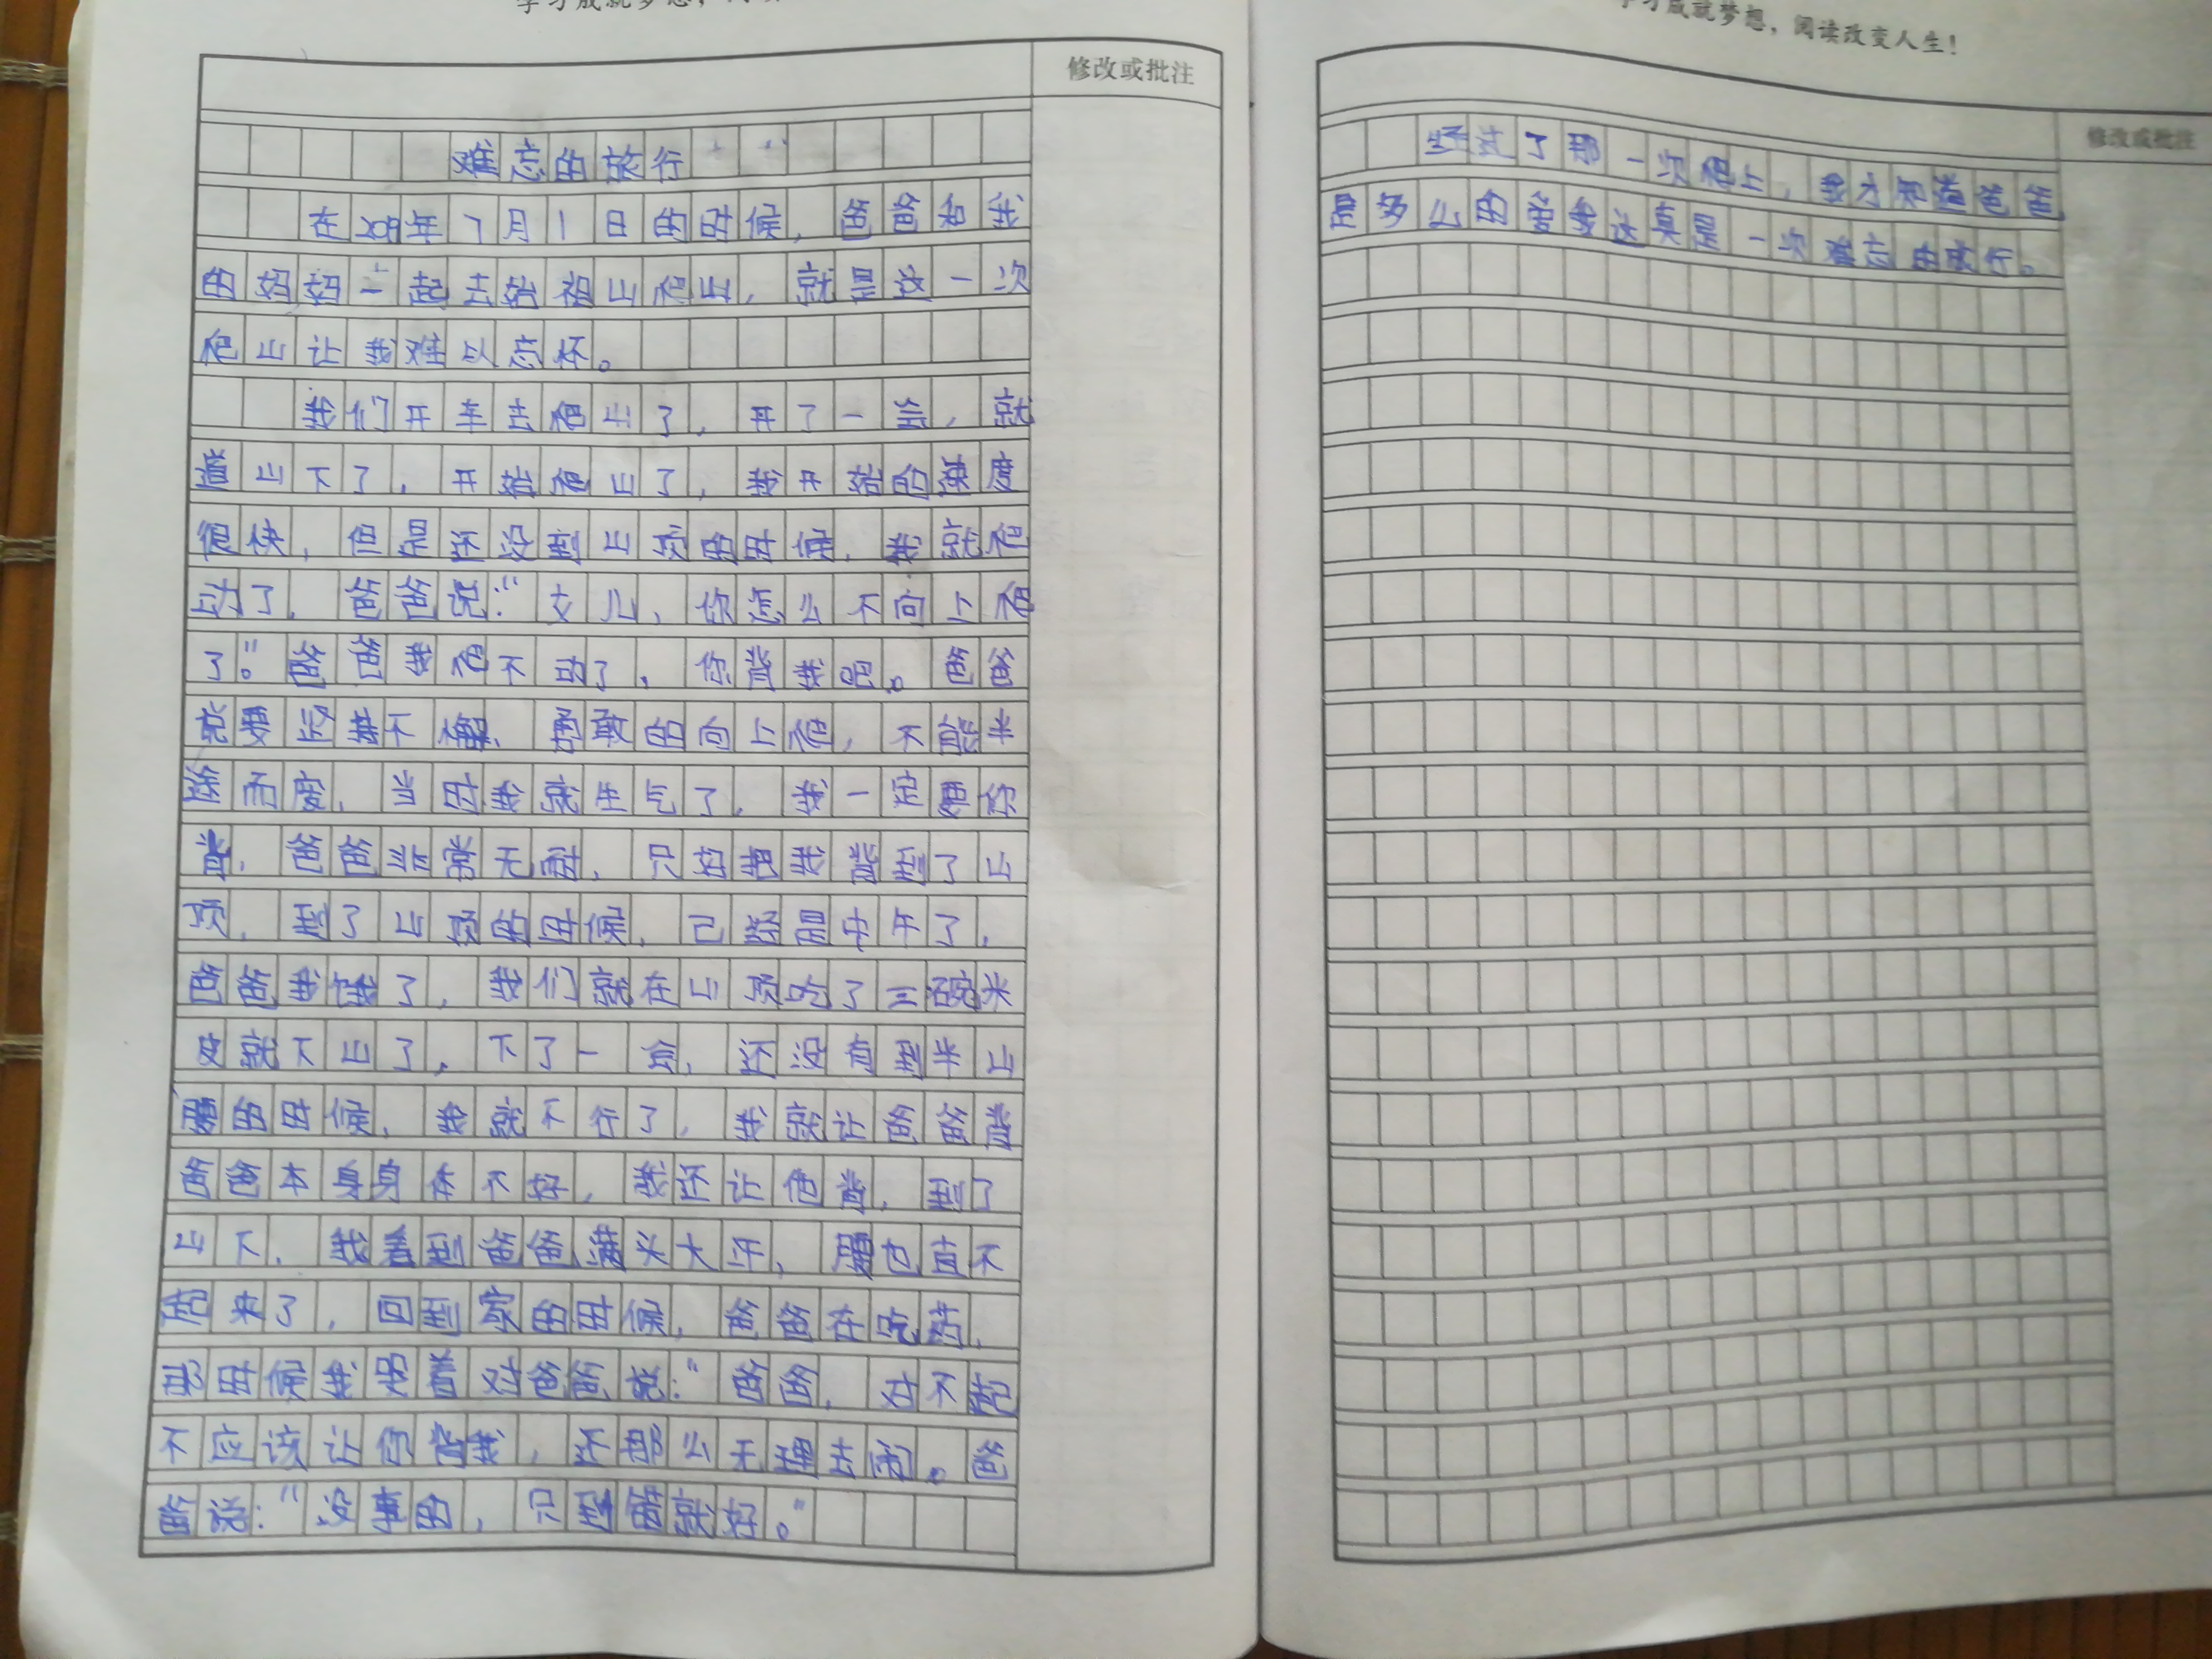 修改或批注
难忘的旅行
在2019年7月1日的时候，爸爸和我
的妈妈一起去始祖山爬山，就是这一次
爬山让我难以忘怀。
我们开车去爬山了，开了一会，就
道山下了，开始爬山了，我开始的速度
很快，但是还没到山顶的时候，我就爬
动了，爸爸说：“女儿，你怎么不向上爬
了。”爸爸我爬不动了，你背我吧。爸爸
说要坚持不懈，勇敢的向上爬，不能半
途而废，当时我就生气了，我一定要你
背，爸爸非常无耐，只好把我背到了山
顶，到了山顶的时候，己经是中午了，
爸爸我饿了，我们就在山顶吃了三碗米
皮就下山了，下了一会，还没有到半山
腰的时候，我就不行了，我就让爸爸背
爸爸本身身体不好，我还让他背，到了
山下，我看到爸爸满头大汗，腰也直不
起来了，回到家的时候，爸爸在吃药，
那时候我哭着对爸爸说：“爸爸，对不起
不应该让你背我，还那么无理去闹。爸
爸说：“没事的，只到错就好。”
学习成就梦想，阅读改变人生！
修改或批注
经过了那一次爬上，我才知道爸爸
是多么的爱我这真是一次难忘的旅行。